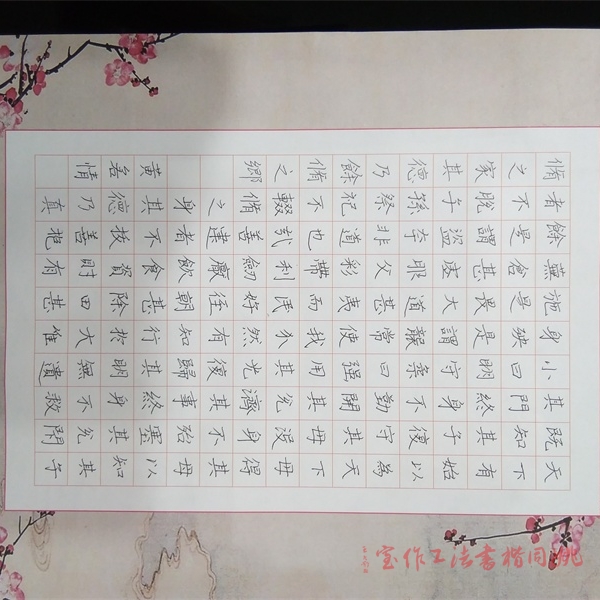 天下有始以為天下母得其母以知其子
既知其子復守其母没身不殆塞其兌閉
其門終身不勤開其兌濟其事終身不救
小曰明守柔曰強用其光復歸其明無遺
身殃是謂襲常使我介然有知行於大唯
施是畏大道甚夷而民好徑朝甚除田甚
蕪倉甚虛服文彩帶利劍厭飲食資財有
餘是謂盜夸非道也哉善建者不拔善抱
者不脫子孫祭祀不輟脩之身其德乃真
脩之家其德乃餘脩之鄉 黃若情
姚同楷書法工作室